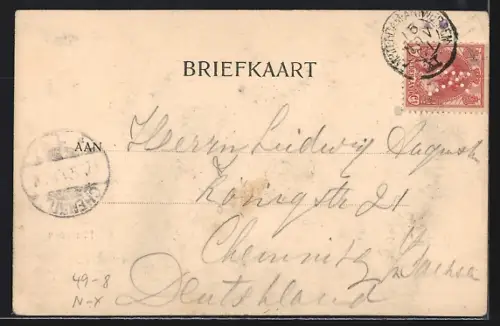 BRIEFKAART
AAN Herrn Ludwig August
Königstr 21
Chemnitz i/Sachsen
Deutschland
49-8
N-X
CHEMNITZ